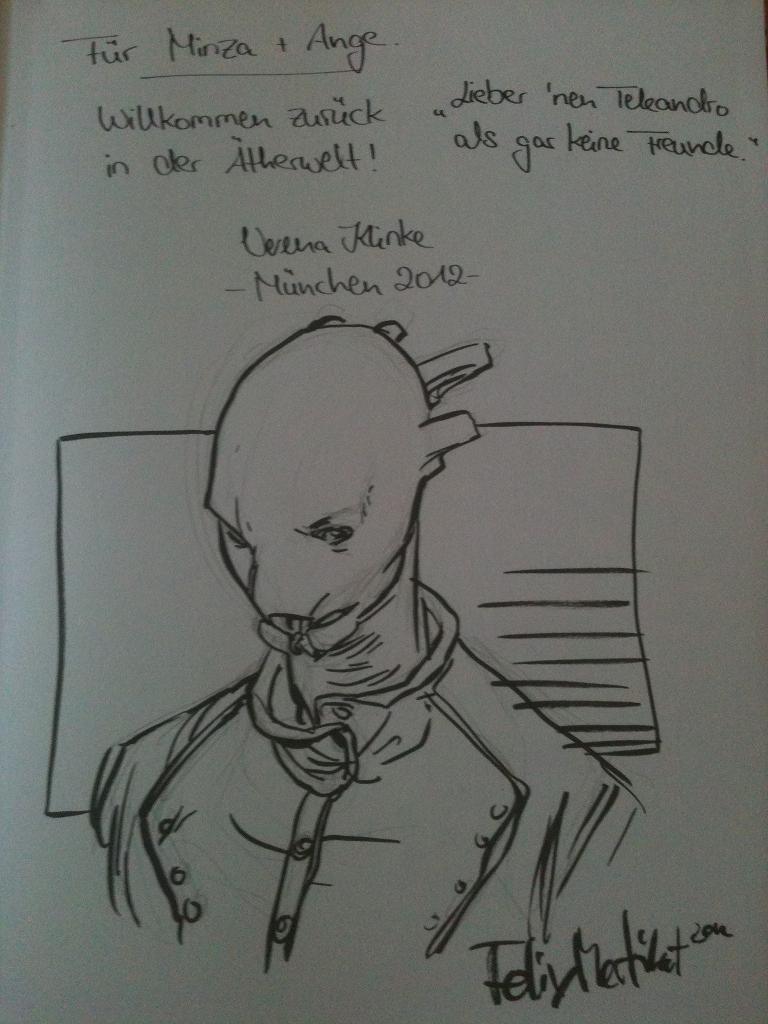 Für Minza + Ange.
Willkommen zurück
in der Ätherwelt!
„Lieber 'nen Teleandro
als gar keine Freunde."
Verena Klinke
- München 2012 -
Felix Mertikat 2012